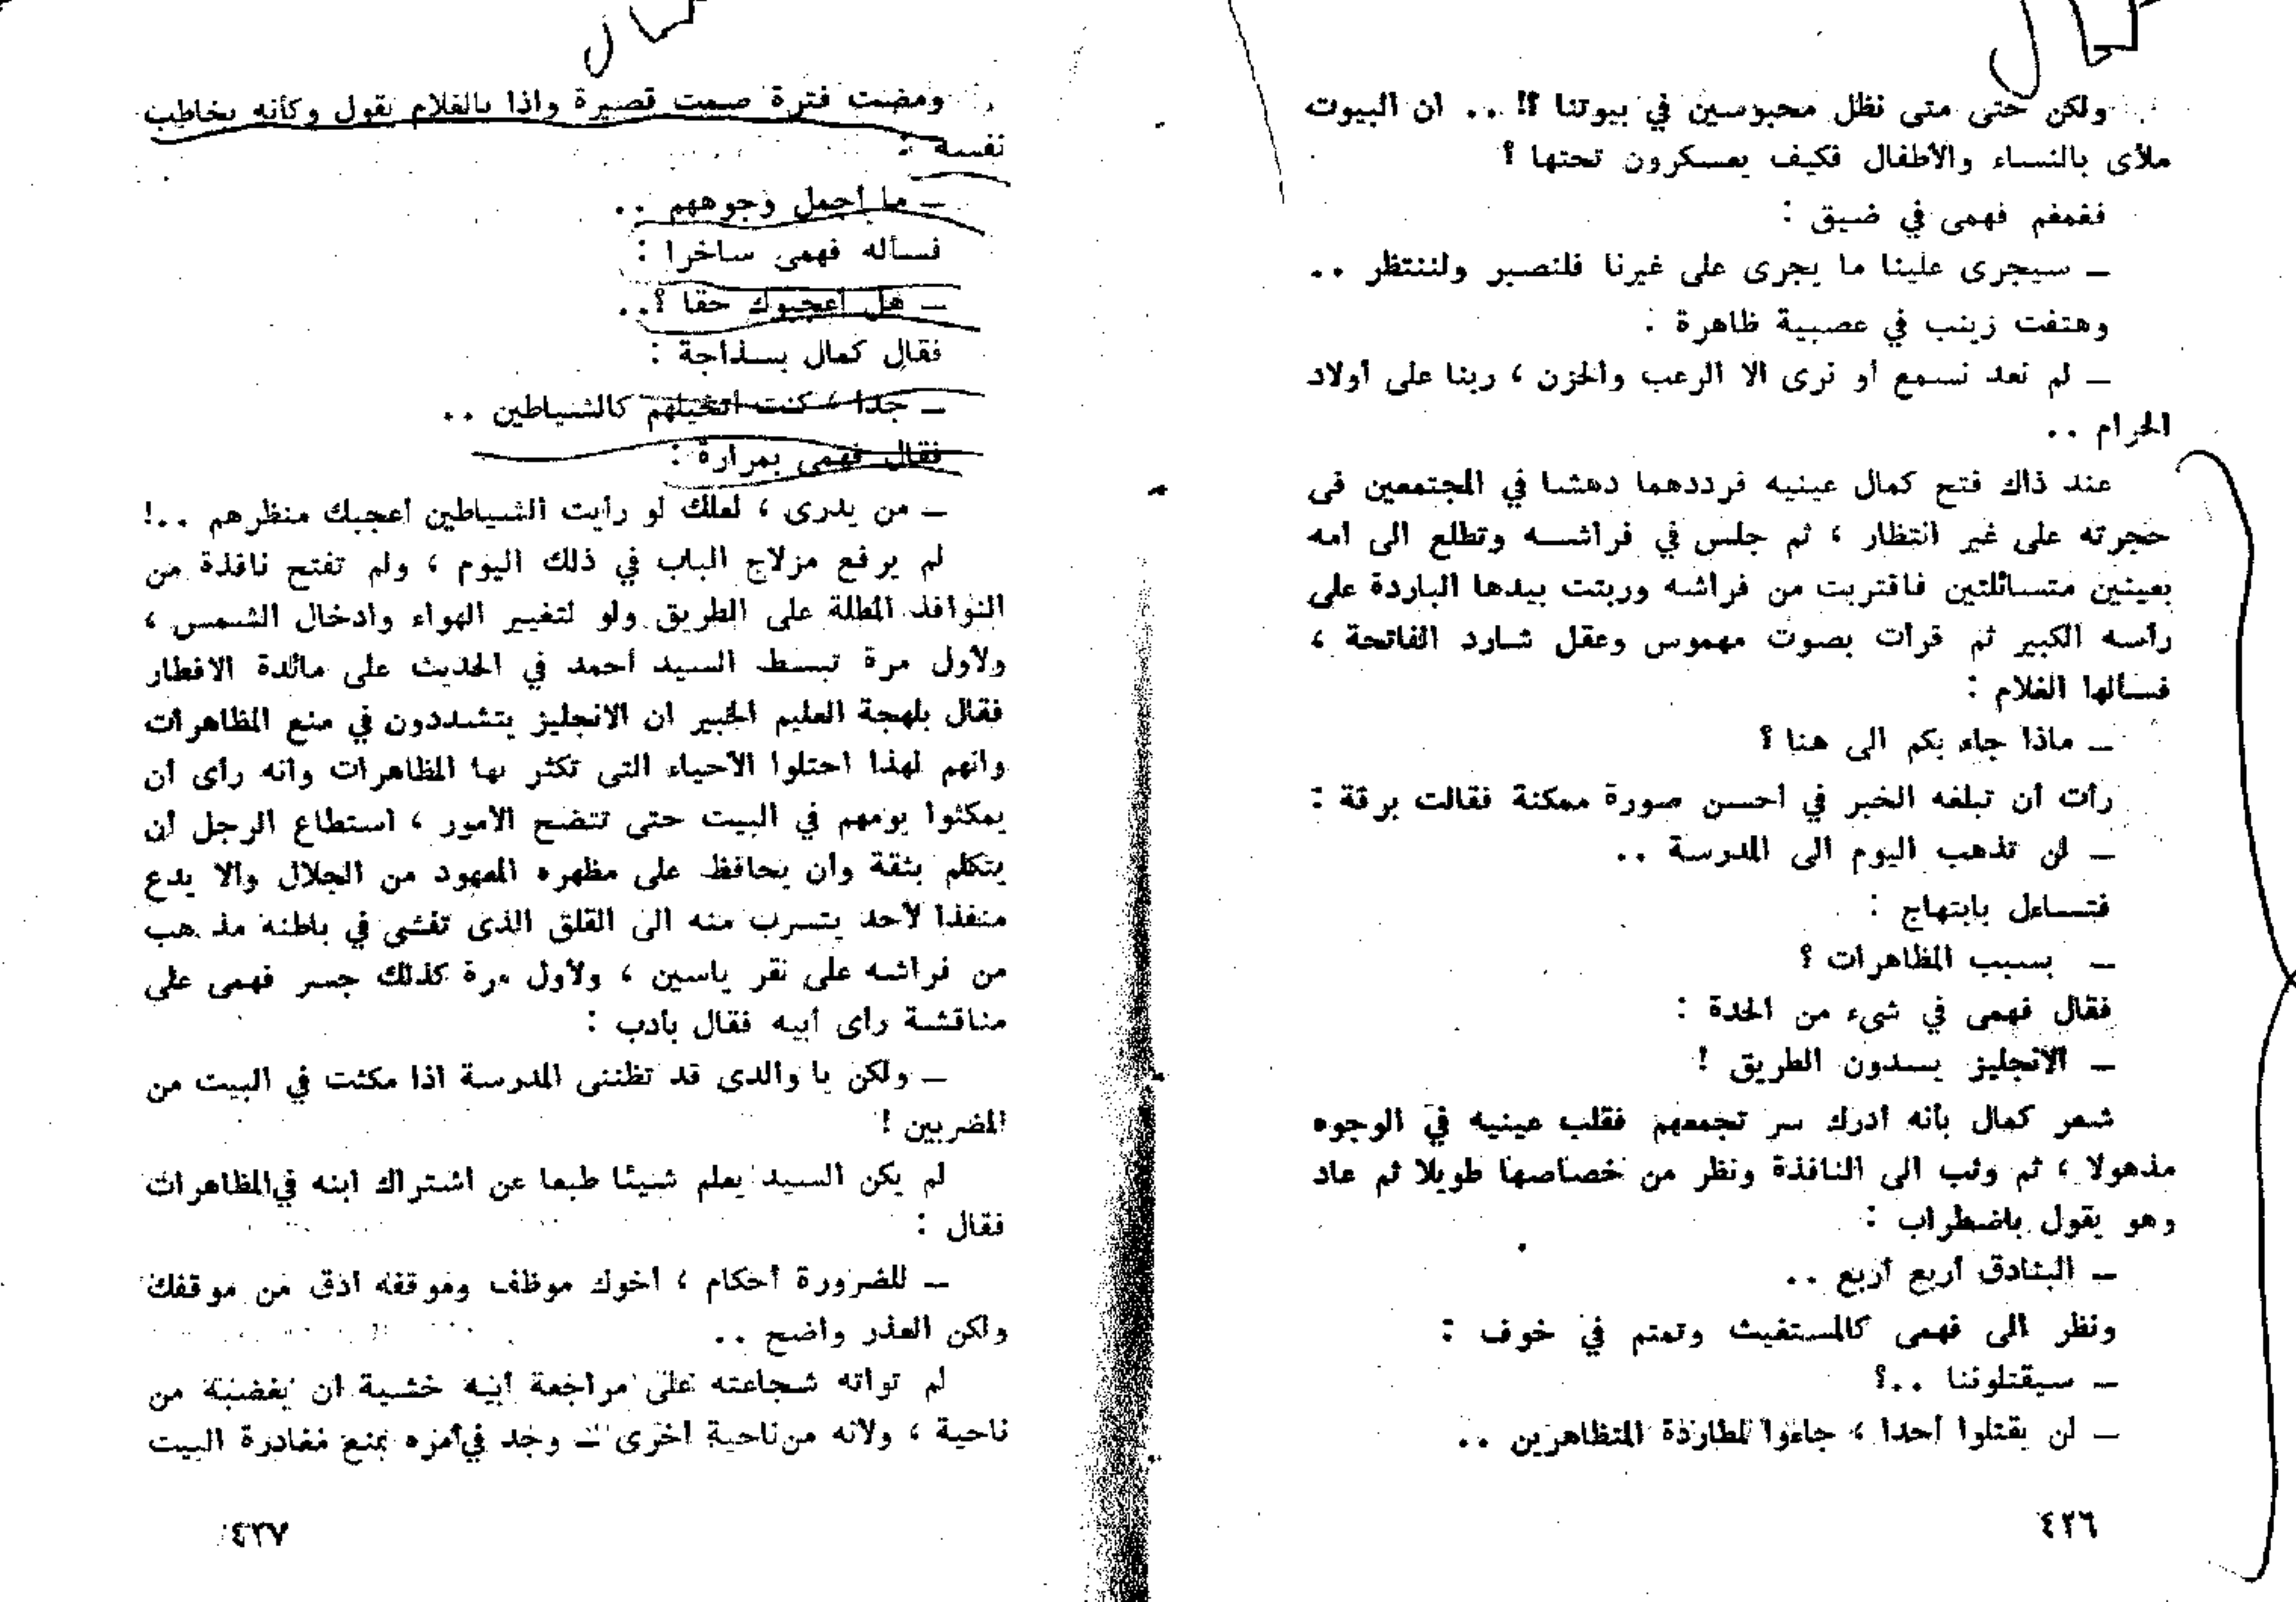 ولكن حتى متى نظل محبوسين في بيوتنا ؟! .. ان البيوت
ملأى بالنساء والأطفال فكيف يعسكرون تحتها ؟
فغمغم فهمى في ضيق :
ـ سيجرى علينا ما يجرى على غيرنا فلنصبر ولننتظر ..
وهتفت زينب في عصبية ظاهرة :
ـ لم نعد نسمع أو نرى الا الرعب والحزن ، ربنا على أولاد
الحرام ..
عند ذاك فتح كمال عينيه فرددهما دهشا في المجتمعين فى
حجرته على غير انتظار ، ثم جلس في فراشه وتطلع الى امه
بعينين متسائلتين فاقتربت من فراشه وربتت بيدها الباردة على
رأسه الكبير ثم قرأت بصوت مهموس وعقل شارد الفاتحة ،
فسألها الغلام :
ـ ماذا جاء بكم الى هنا ؟
رأت أن تبلغه الخبر في أحسن صورة ممكنة فقالت برقة :
ـ لن تذهب اليوم الى المدرسة ..
فتساءل بابتهاج :
ـ بسبب المظاهرات ؟
فقال فهمى في شىء من الحدة :
ـ الانجليز يسدون الطريق !
شعر كمال بأنه أدرك سر تجمعهم فقلب عينيه في الوجوه
مذهولا ، ثم وثب الى النافذة ونظر من خصاصها طويلا ثم عاد
وهو يقول باضطراب :
ـ البنادق أربع أربع ..
ونظر الى فهمى كالمستغيث وتمتم في خوف :
ـ سيقتلوننا ..؟
ـ لن يقتلوا أحدا ، جاءوا لمطاردة المتظاهرين ..
٤٢٦
كمال
ومضت فترة صمت قصيرة واذا بالغلام يقول وكأنه يخاطب
نفسه :
ـ ما أجمل وجوههم ..
فسأله فهمى ساخرا :
ـ هل أعجبوك حقا ؟..
فقال كمال بسذاجة :
ـ جدا ، كنت أتخيلهم كالشياطين ..
فقال فهمى بمرارة :
ـ من يدرى ، لعلك لو رأيت الشياطين أعجبك منظرهم ..!
لم يرفع مزلاج الباب في ذلك اليوم ، ولم تفتح نافذة من
النوافذ المطلة على الطريق ولو لتغيير الهواء وادخال الشمس ،
ولأول مرة تبسط السيد أحمد في الحديث على مائدة الافطار
فقال بلهجة العليم الخبير ان الانجليز يتشددون في منع المظاهرات
وانهم لهذا احتلوا الأحياء التى تكثر بها المظاهرات وانه رأى أن
يمكثوا يومهم في البيت حتى تتضح الأمور ، استطاع الرجل أن
يتكلم بثقة وأن يحافظ على مظهره المعهود من الجلال وألا يدع
منفذا لأحد يتسرب منه الى القلق الذى تفشى في باطنه مذ هب
من فراشه على نقر ياسين ، ولأول مرة كذلك جسر فهمى على
مناقشة رأى أبيه فقال بأدب :
ـ ولكن يا والدى قد تظننى المدرسة اذا مكثت في البيت من
المضربين !
لم يكن السيد يعلم شيئا طبعا عن اشتراك ابنه في المظاهرات
فقال :
ـ للضرورة أحكام ، أخوك موظف وموقفه أدق من موقفك
ولكن العذر واضح ..
لم تواته شجاعته على مراجعة أبيه خشية أن يغضبه من
ناحية ، ولأنه من ناحية أخرى ـ وجد في أمره بمنع مغادرة البيت
٤٢٧